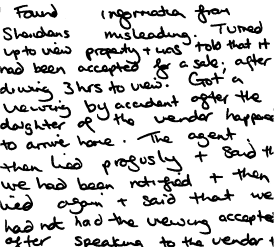 Found information from
Sheridans misleading. Turned
up to view property + was told that it
had been accepted for a sale, after
driving 3 hrs to view. Got a
viewing by accident after the
daughter of the vender happene
to arrive home. The agent
then lied profusly + said th
we had been notified + then
lied again + said that we
had not had the viewing accepte
after speaking to the vendor